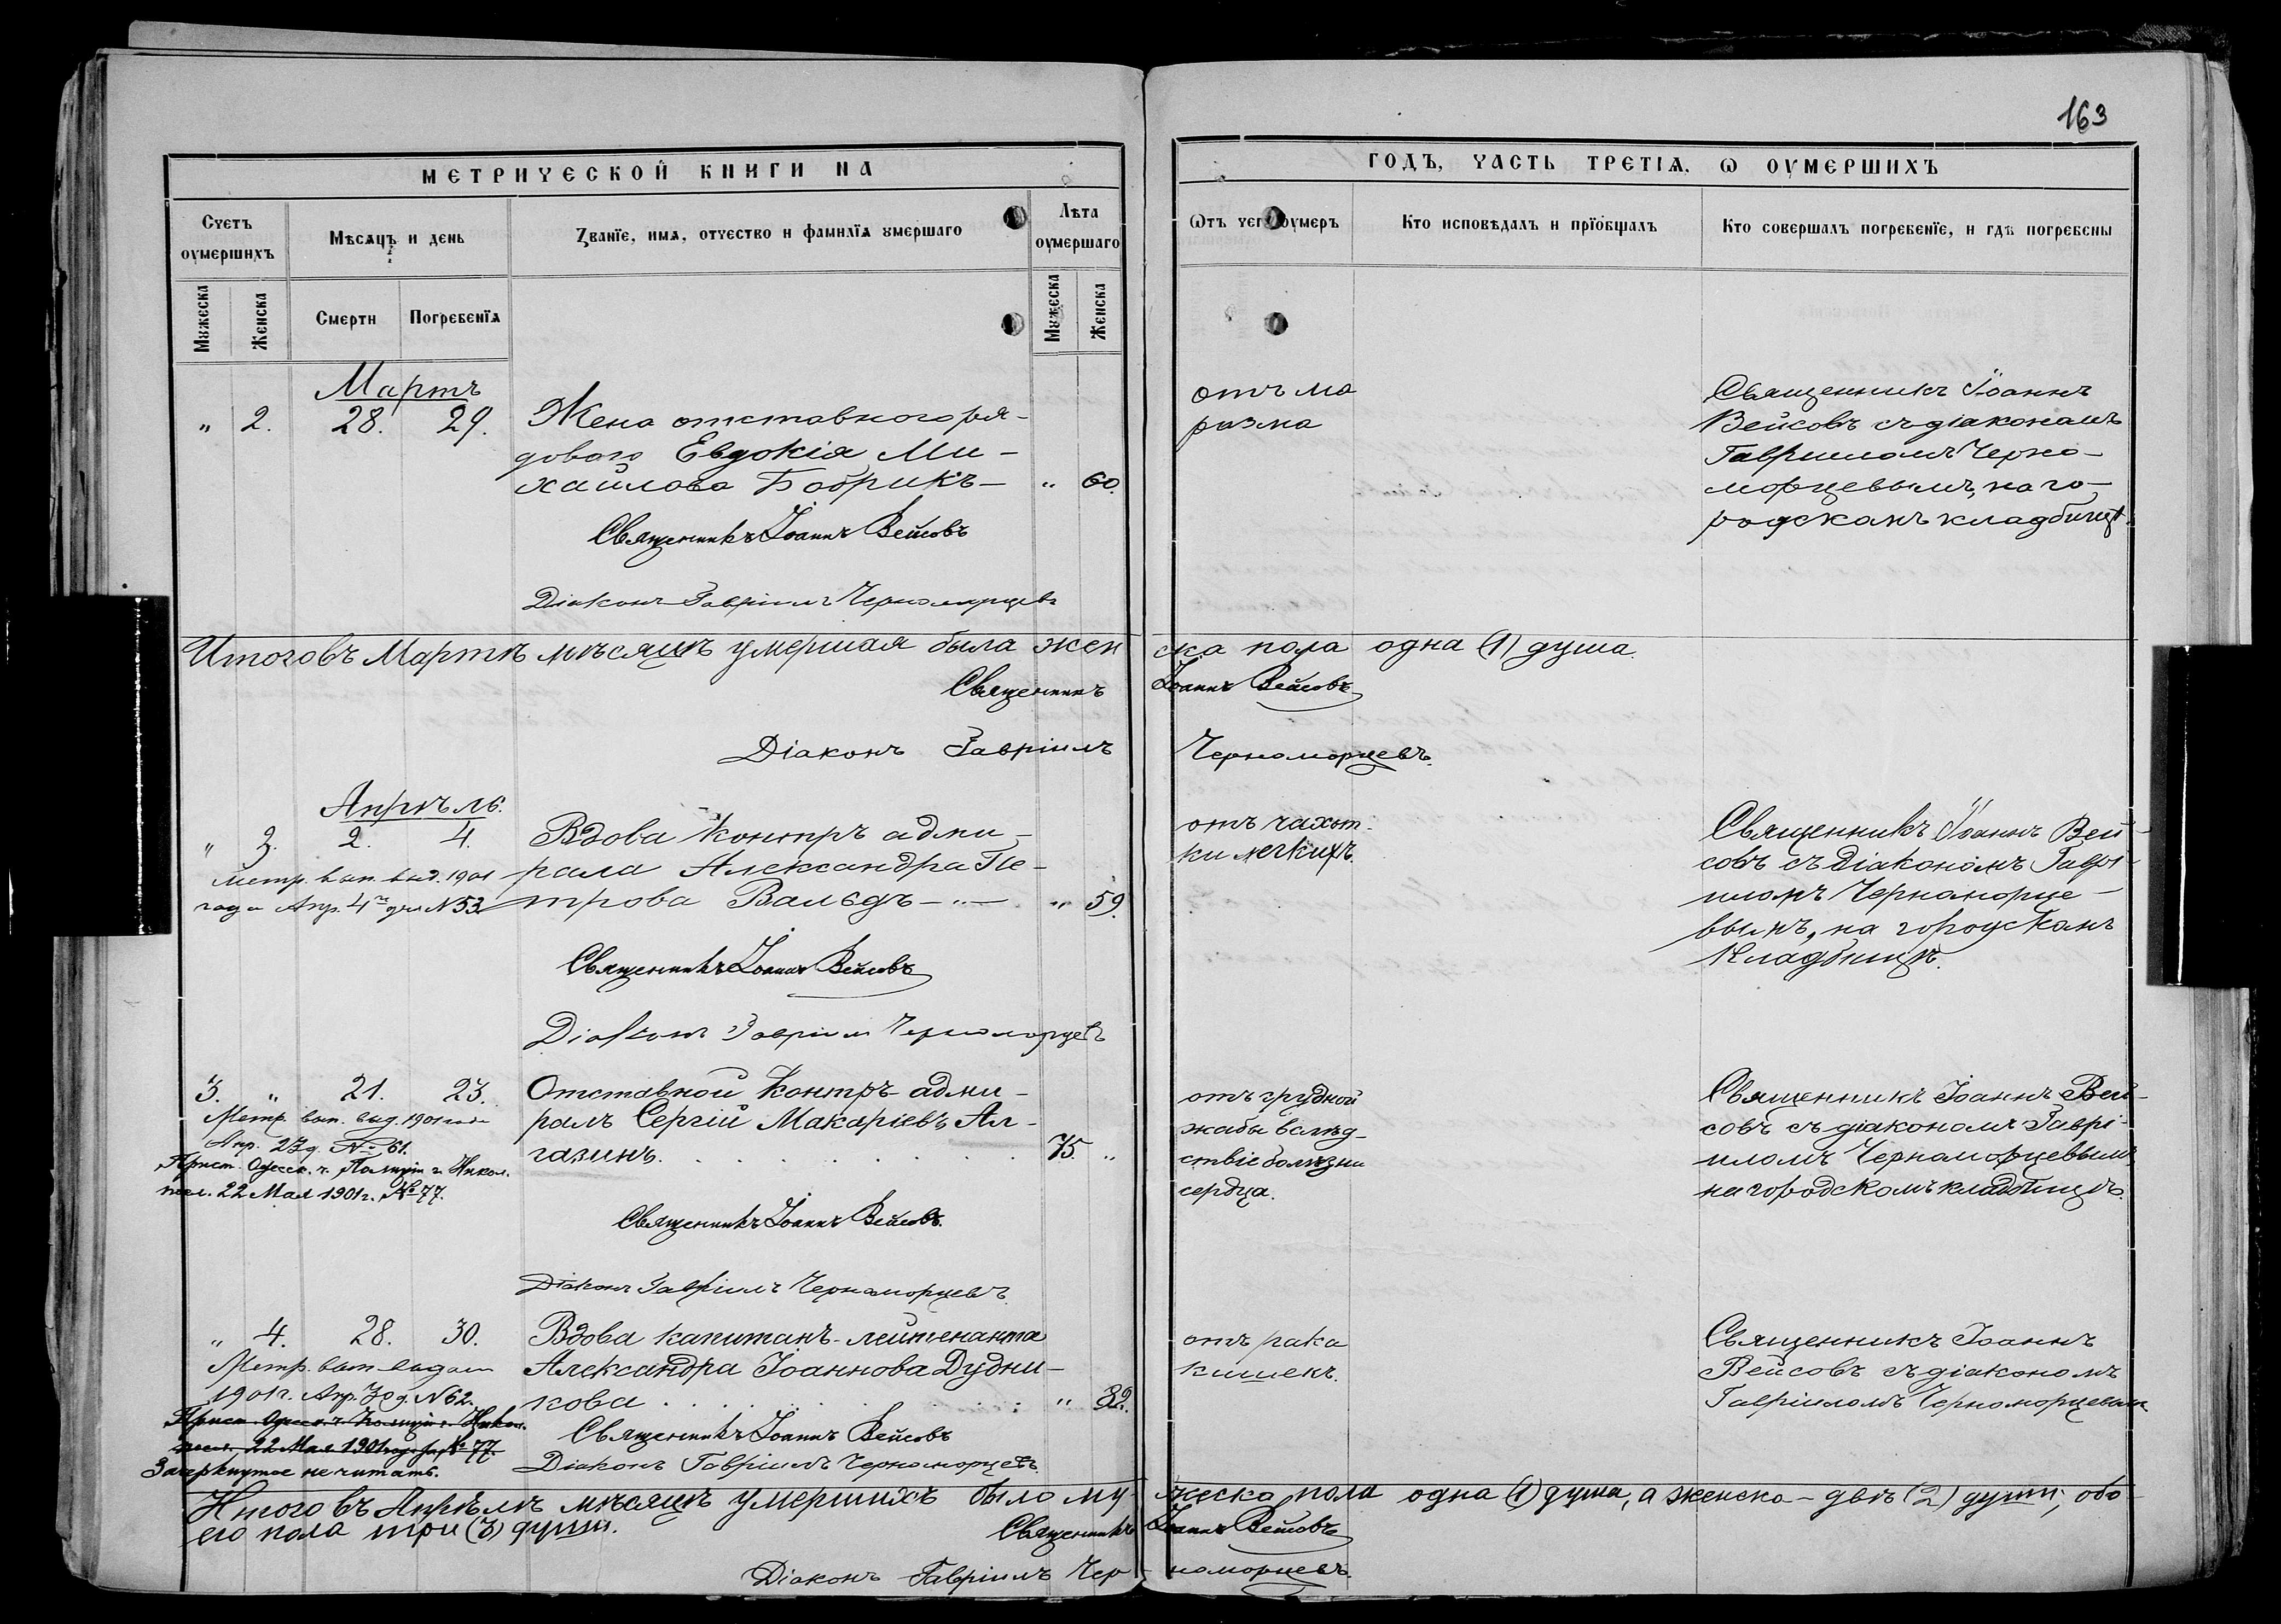 163
МЕТРИЧЕСКОЙ КНИГИ НА
ГОДЪ, ЧАСТЬ ТРЕТІЯ, Ѡ ОУМЕРШИХЪ
Счетъ оумершихъ
Мѣсяцъ и день
Званїе, имя, отчество и фамилїя умершаго
Лѣта оумершаго
Ѿтъ чего оумеръ
Кто исповѣдалъ и прїобщалъ
Кто совершалъ погребенїе, и гдѣ погребены
Мужеска
Женска
Смерти
Погребенїя
Мужеска
Женска
Мартъ
" 2. 28. 29.
Жена отставного ря-
дового Евдокія Ми-
хайлова Бобрикъ — " 60.
Священникъ Іоаннъ Вейсовъ
Діаконъ Гавріилъ Черноморцевъ
отъ ма
разма
Священникъ Іоаннъ
Вейсовъ съ діакономъ
Гавріиломъ Черно-
морцевымъ, на го-
родскомъ кладбищѣ.
Итого въ Мартѣ мѣсяцѣ умершая была жен
ска пола одна (1) душа.
Священникъ
Іоаннъ Вейсовъ
Діаконъ Гавріилъ
Черноморцевъ.
Апрѣль.
" 3. 2. 4.
Метр. вып. выд. 1901
года Апр. 4го дня № 53.
Вдова контръ адми-
рала Александра Пе-
трова Вальдъ — " — " 59.
Священникъ Іоаннъ Вейсовъ
Діаконъ Гавріилъ Черноморцевъ
отъ чахот-
ки легкихъ.
Священникъ Іоаннъ Вей-
совъ съ діакономъ Гаврі-
иломъ Черноморце-
вымъ, на городскомъ
кладбищѣ.
3. " 21. 23.
Метр. вып. выд. 1901 года
Апр. 23 д. № 61.
Прист. Одесск. ч. Полиціи г. Никол.
22 Мая 1901 г. № 77.
Отставной контръ-адми-
ралъ Сергій Макаріевъ Ал-
газинъ. . . . . . . . . 75. "
Священникъ Іоаннъ Вейсовъ.
Діаконъ Гавріилъ Черноморцевъ
отъ грудной
жабы вслѣд-
ствіе болѣзни
сердца.
Священникъ Іоаннъ Вей-
совъ съ діакономъ Гаврі-
иломъ Черноморцевымъ,
на городскомъ кладбищѣ.
" 4. 28. 30.
Метр. вып. выдан
1901 г. Апр. 30 д. № 62.
Прист. Одесск. ч. Полиціи г. Никол.
22 Мая 1901 года № 77.
Зачеркнутое не читать.
Вдова капитанъ-лейтенанта
Александра Іоаннова Дудни-
кова . . . . . . . . . " 82.
Священникъ Іоаннъ Вейсовъ
Діаконъ Гавріилъ Черноморцевъ.
отъ рака
кишекъ.
Священникъ Іоаннъ
Вейсовъ съ діакономъ
Гавріиломъ Черноморцевымъ
Итого въ Апрѣлѣ мѣсяцѣ умершихъ было му-
жеска пола одна (1) душа, а женска – двѣ (2) души; обо-
его пола три (3) души.
Священникъ
Іоаннъ Вейсовъ
Діаконъ Гавріилъ Чер-
номорцевъ.